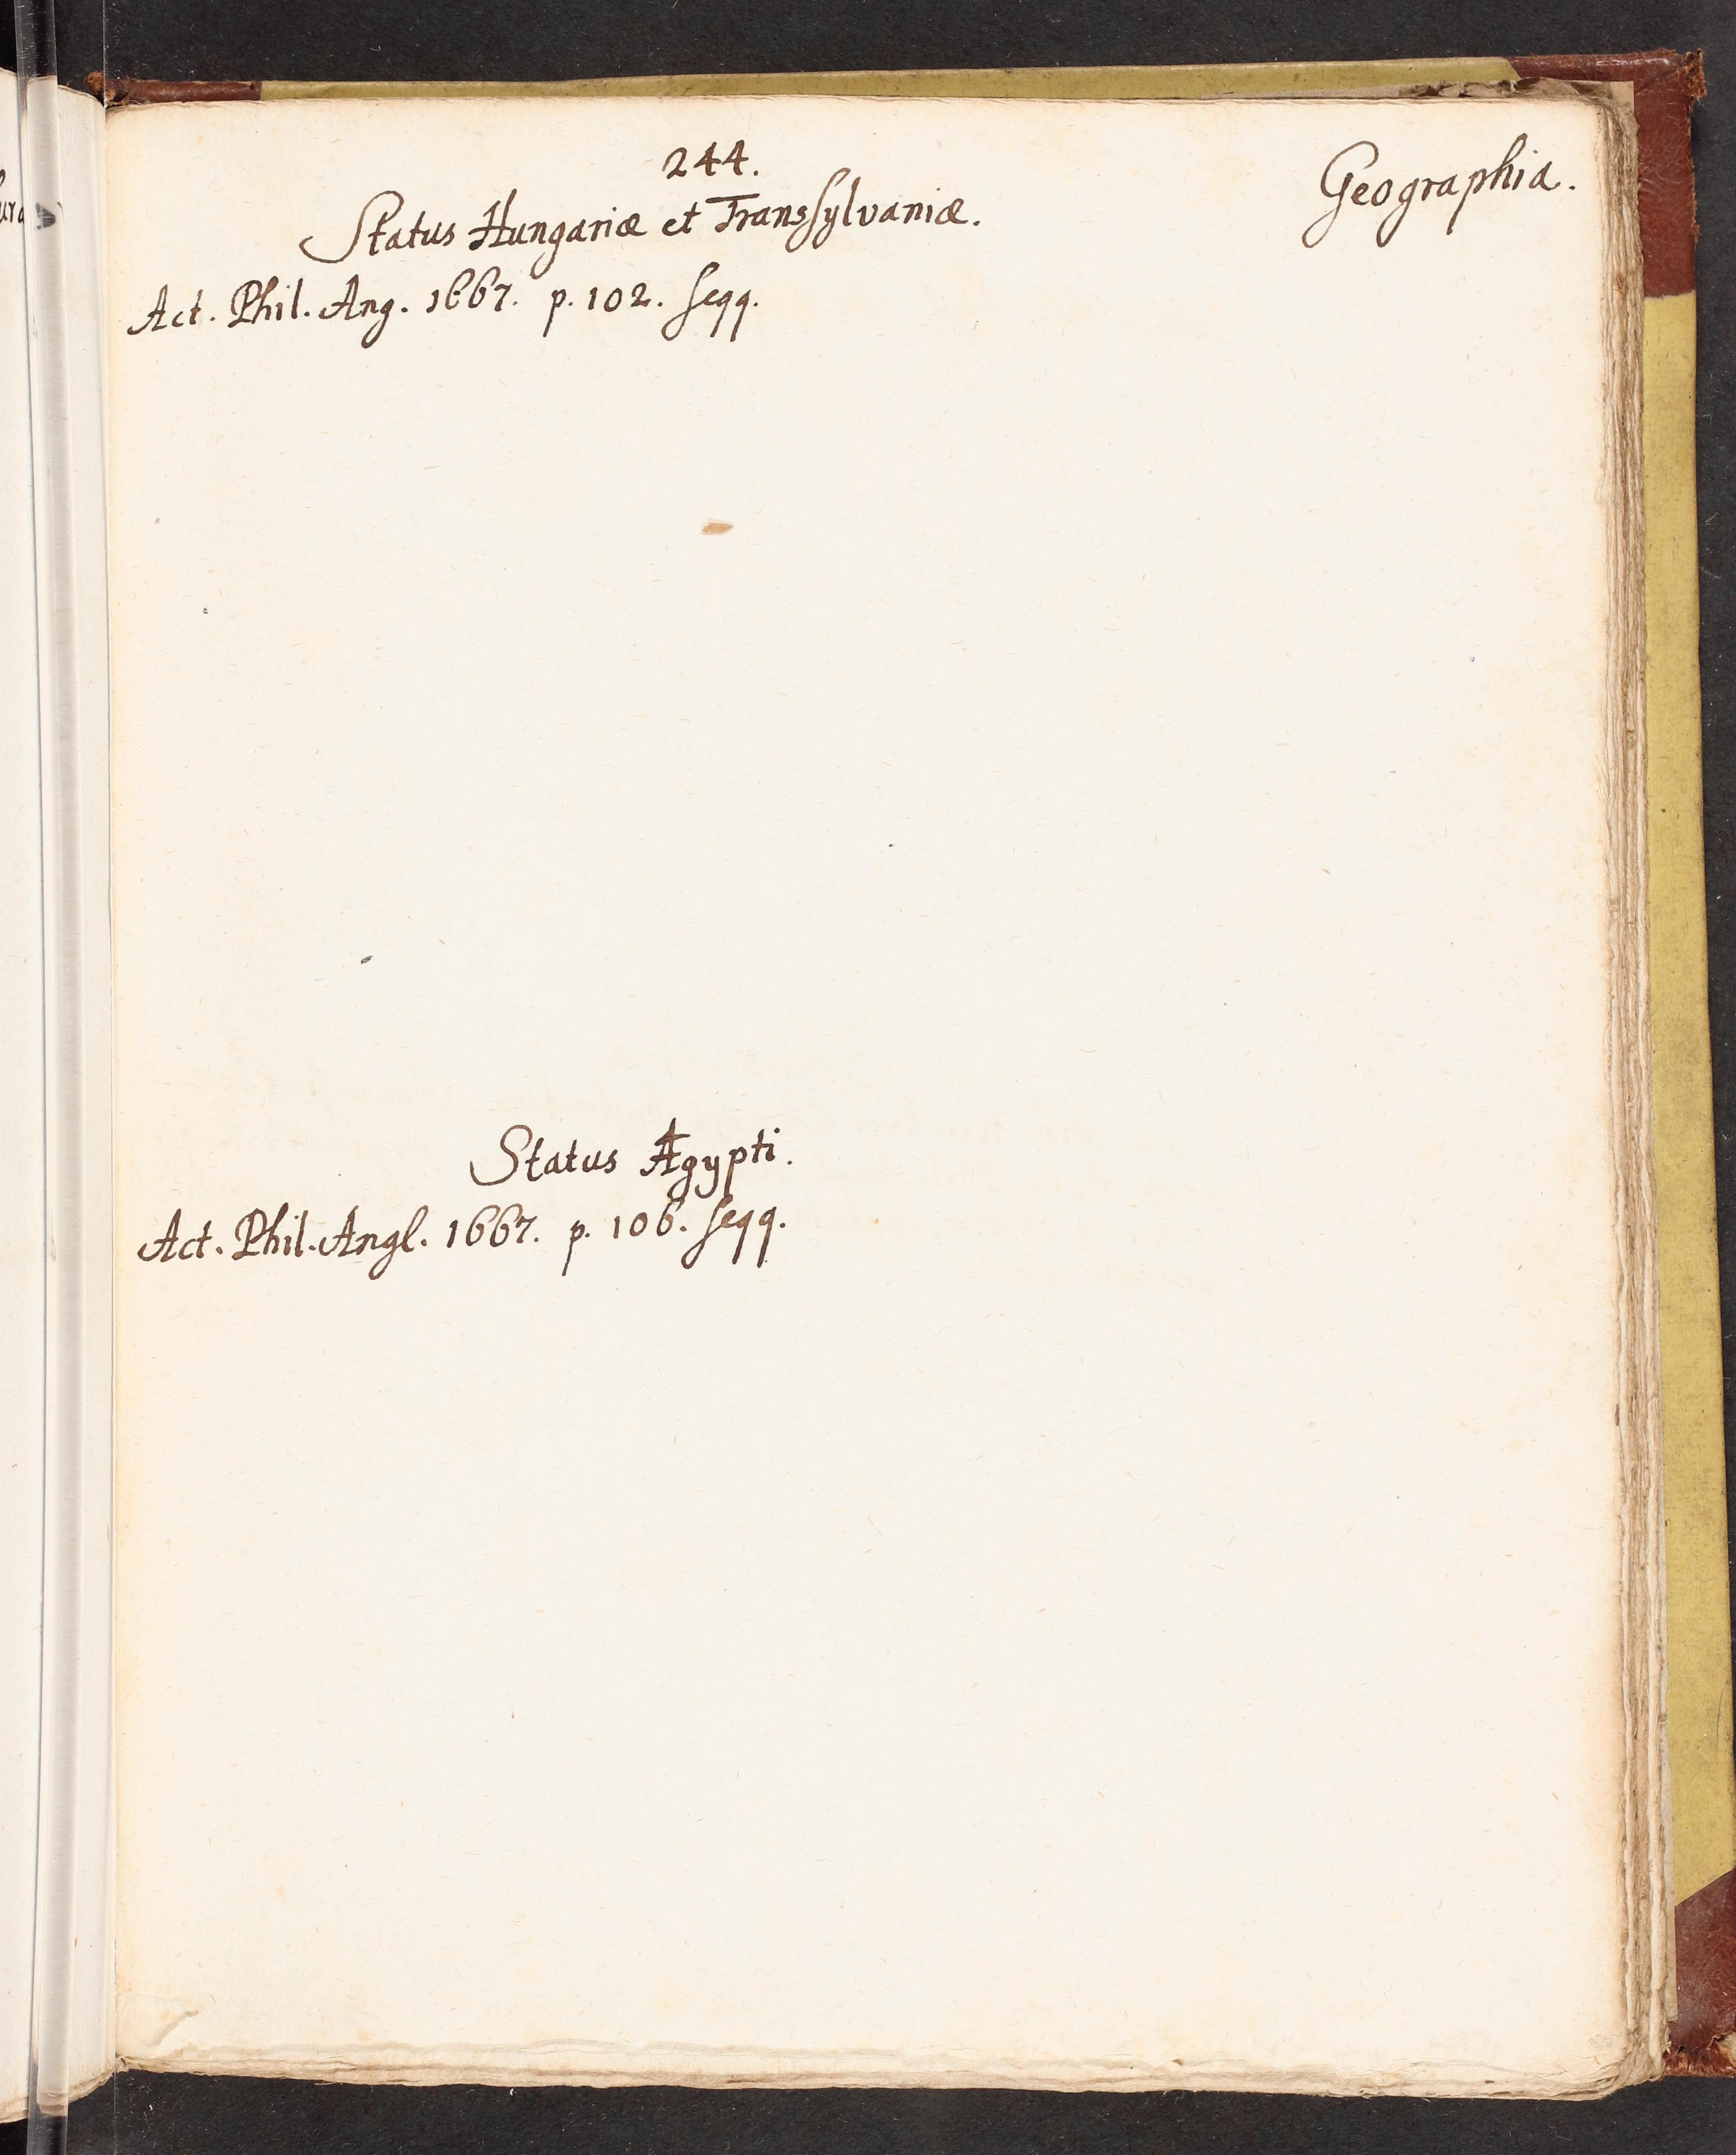 244.
Geographia.
Status Hungariæ et Transſylvaniæ.
Act. Phil. Ang. 1667. p. 102. ſeqq.
Status Ægypti.
Act. Phil. Angl. 1667. p. 106. ſeqq.